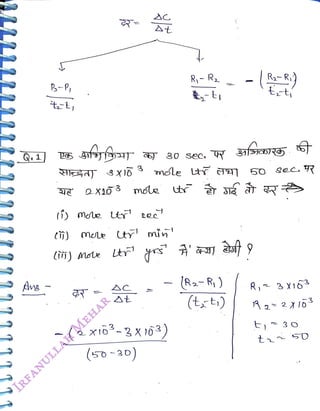 दर = ΔC / Δt
P₂-P₁ / t₂-t₁
R₁-R₂ / t₂-t₁ = - (R₂-R₁ / t₂-t₁)
Q.1] एक अभिक्रिया का 30 sec. पर अभिकारक की
सान्द्रता 3×10⁻³ mole ltr⁻¹ तथा 50 sec. पर
यह 2×10⁻³ mole ltr⁻¹ हो गई तो दर ⇒
(i) mole ltr⁻¹ sec⁻¹
(ii) mole ltr⁻¹ min⁻¹
(iii) mole ltr⁻¹ yrs⁻¹ में क्या होगी ?
Ans - दर = ΔC / Δt = -(R₂-R₁) / (t₂-t₁)
-(2×10⁻³ - 3×10⁻³) / (50-30)
R₁ = 3×10⁻³
R₂ = 2×10⁻³
t₁ = 30
t₂ = 50
IRFANULLAH MEHAR